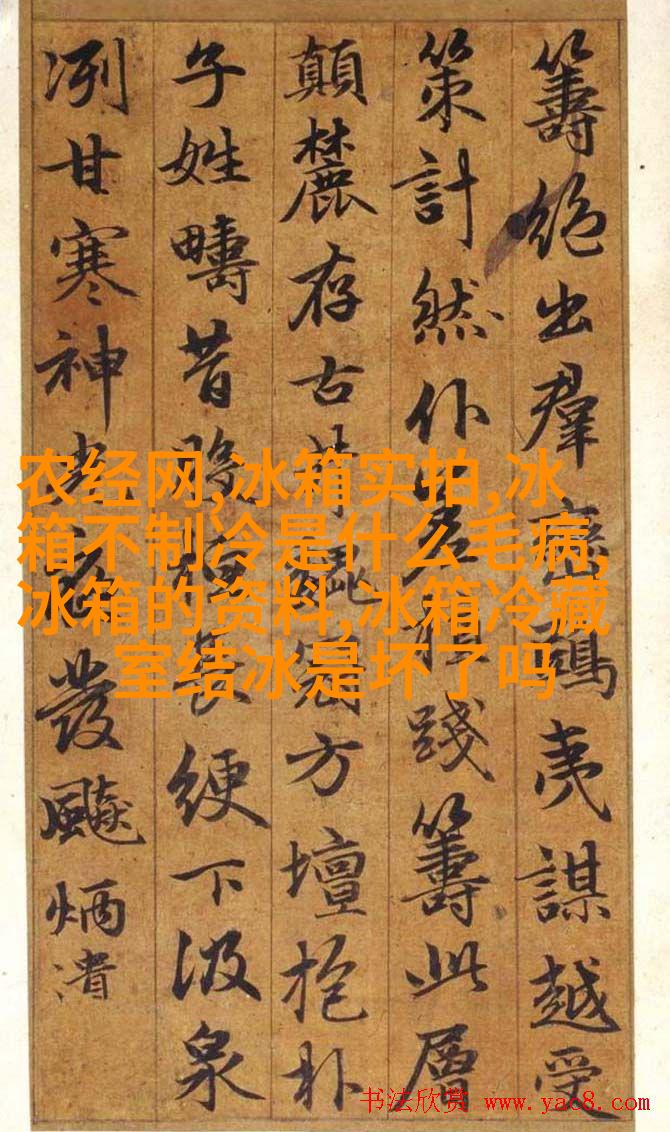 籌絕出羣夷謀越受
策計然仆踐籌此層
顛麓存古方壇抱朴
子姓疇昔長綆下汲泉
冽甘寒神發飈炳潰
农经网,冰箱实拍,冰
箱不制冷是什么毛病,
冰箱的资料,冰箱冷藏
室结冰是坏了吗
书法欣赏 www.yac8.com